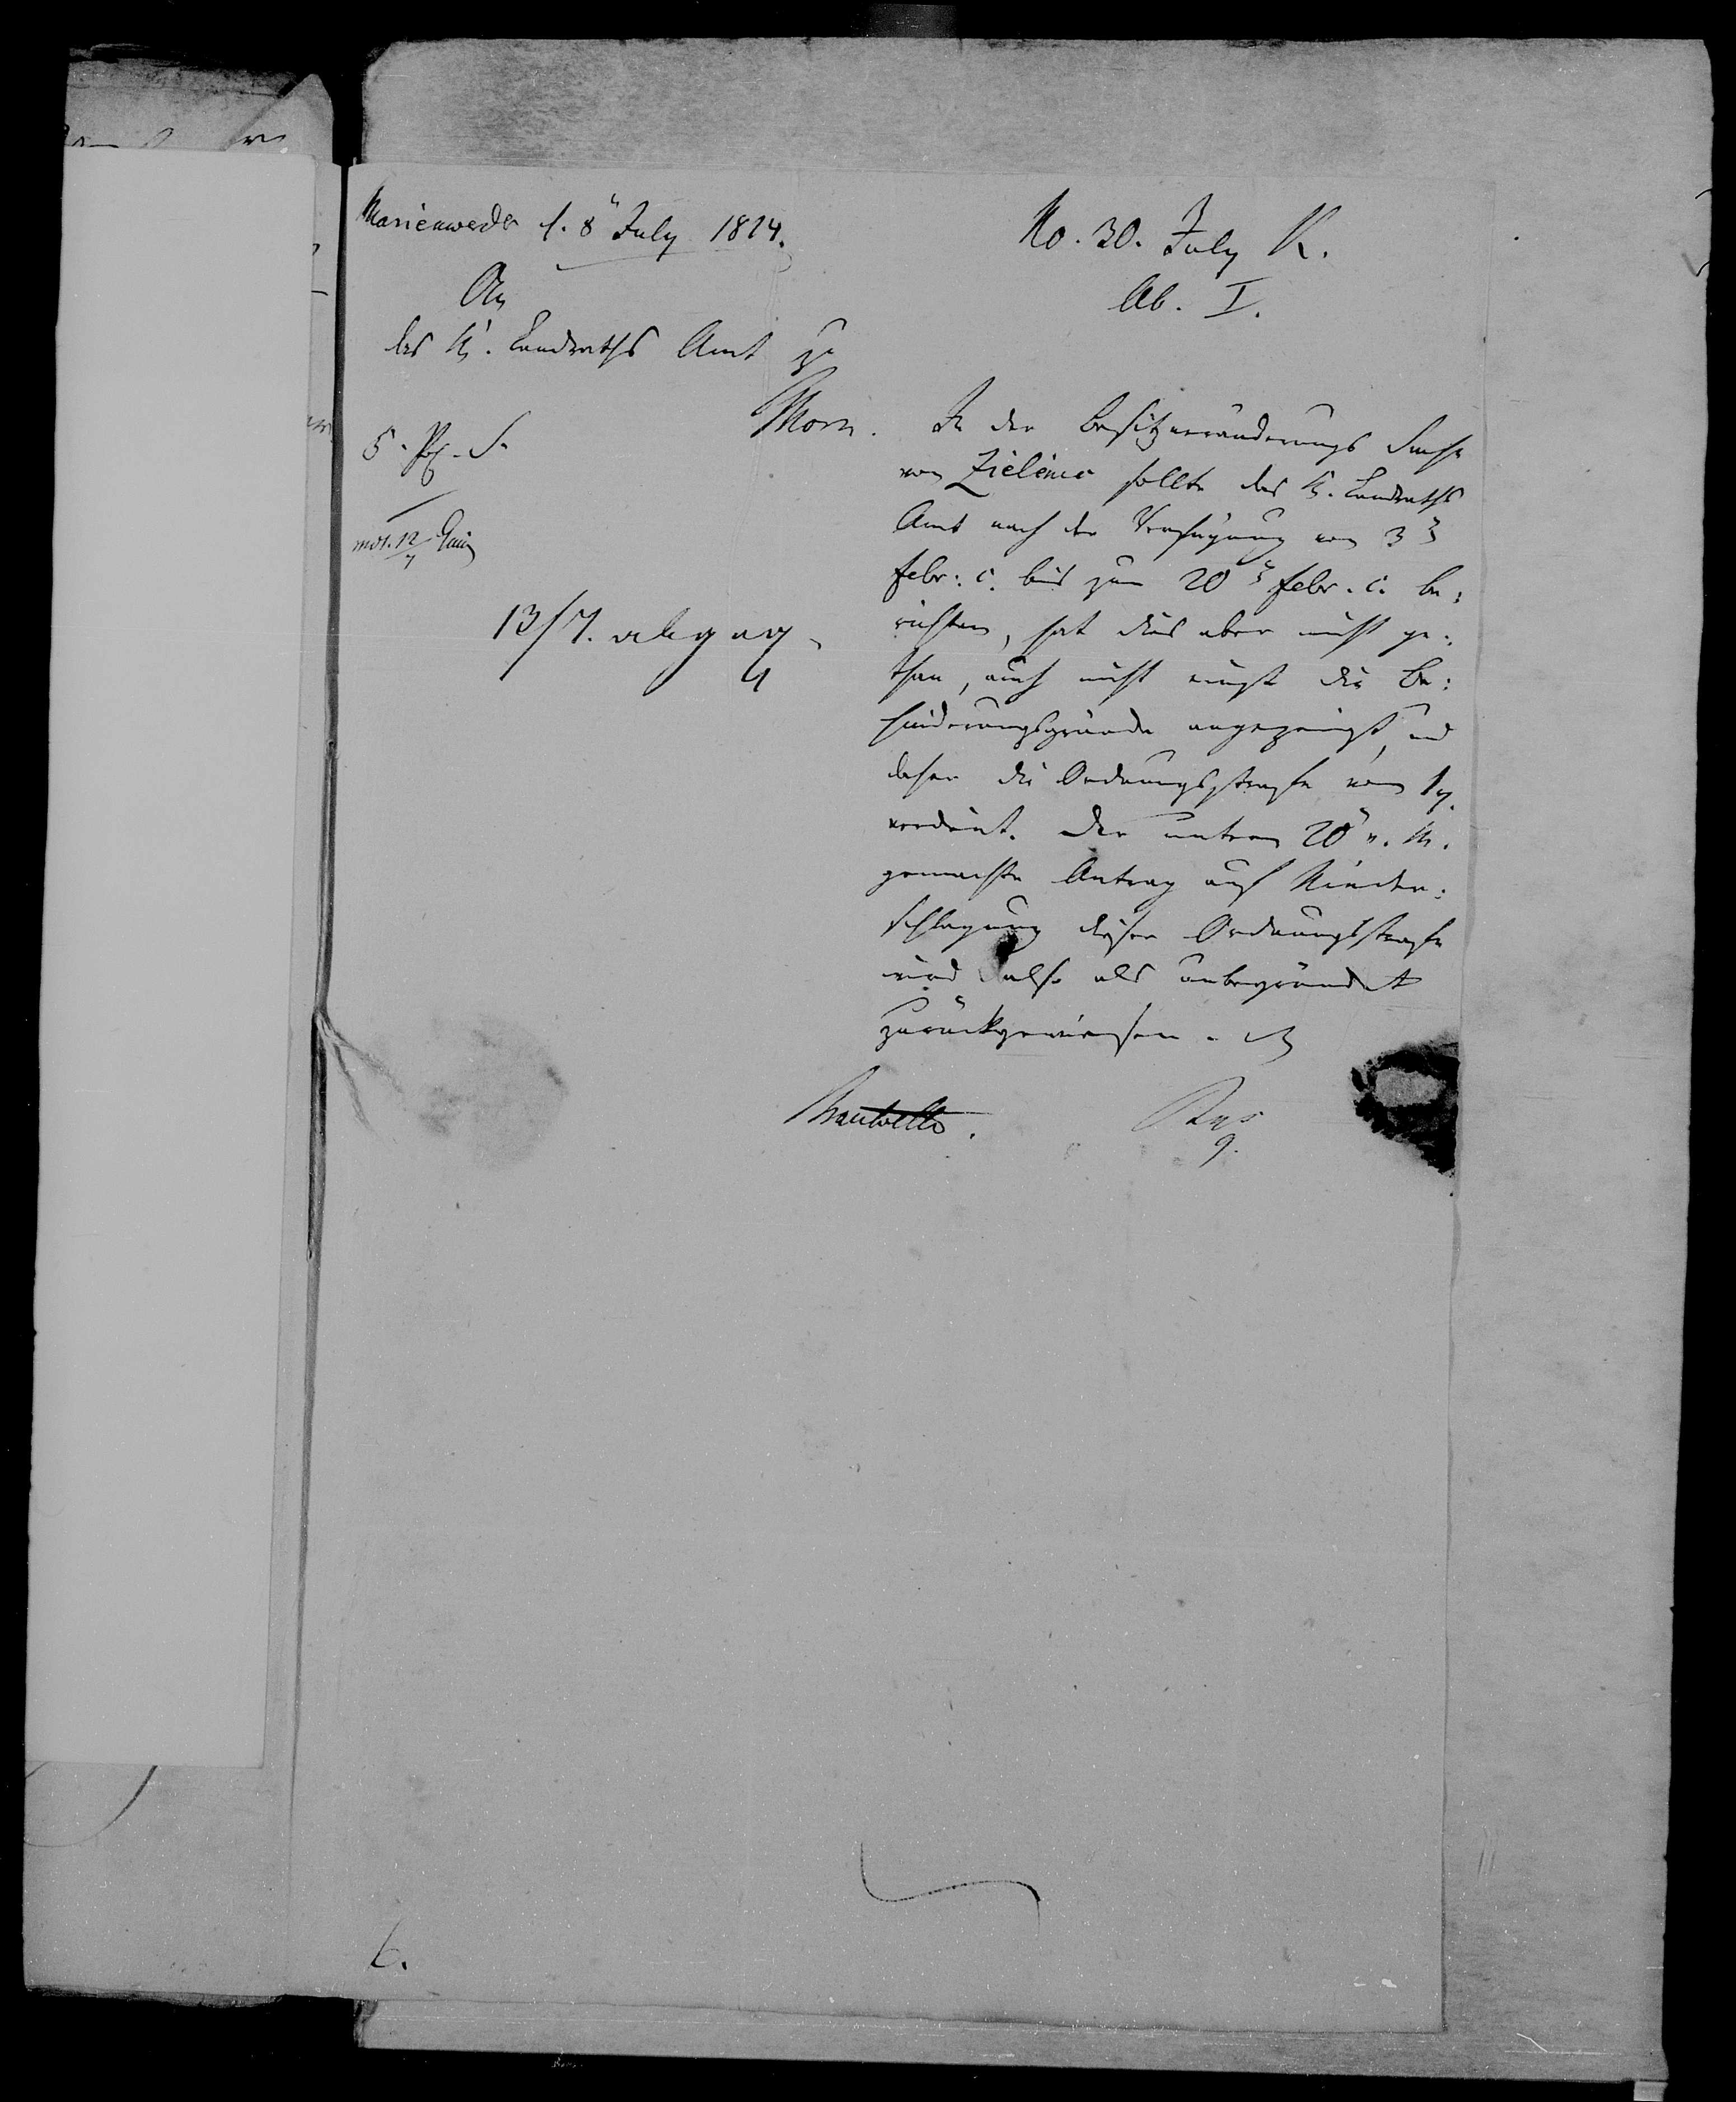 Marienwerder d. 8 July 1824.
An
das K. Landraths Amt zu
Thorn.
No. 30. July K.
Ab. I.
mdt. 12/7
13/7. abgeg.
In der Besitzveränderungs Sache
von Zielinio sollte das K. Landraths
Amt nach der Verfügung vom 3
Febr: c. bis zum 20 Febr. c. be:
richten, hat dies aber nicht ge:
than, auch nicht einst die Be:
hinderungsgründe angezeigt, und
daher die Ordnungsstrafe von 1
verdient. Der unterm 20 v. M.
gemachte Antrag auf Nieder:
schlagung dieser Ordnungsstrafe
wird also als unbegründet
zurückgewiesen.